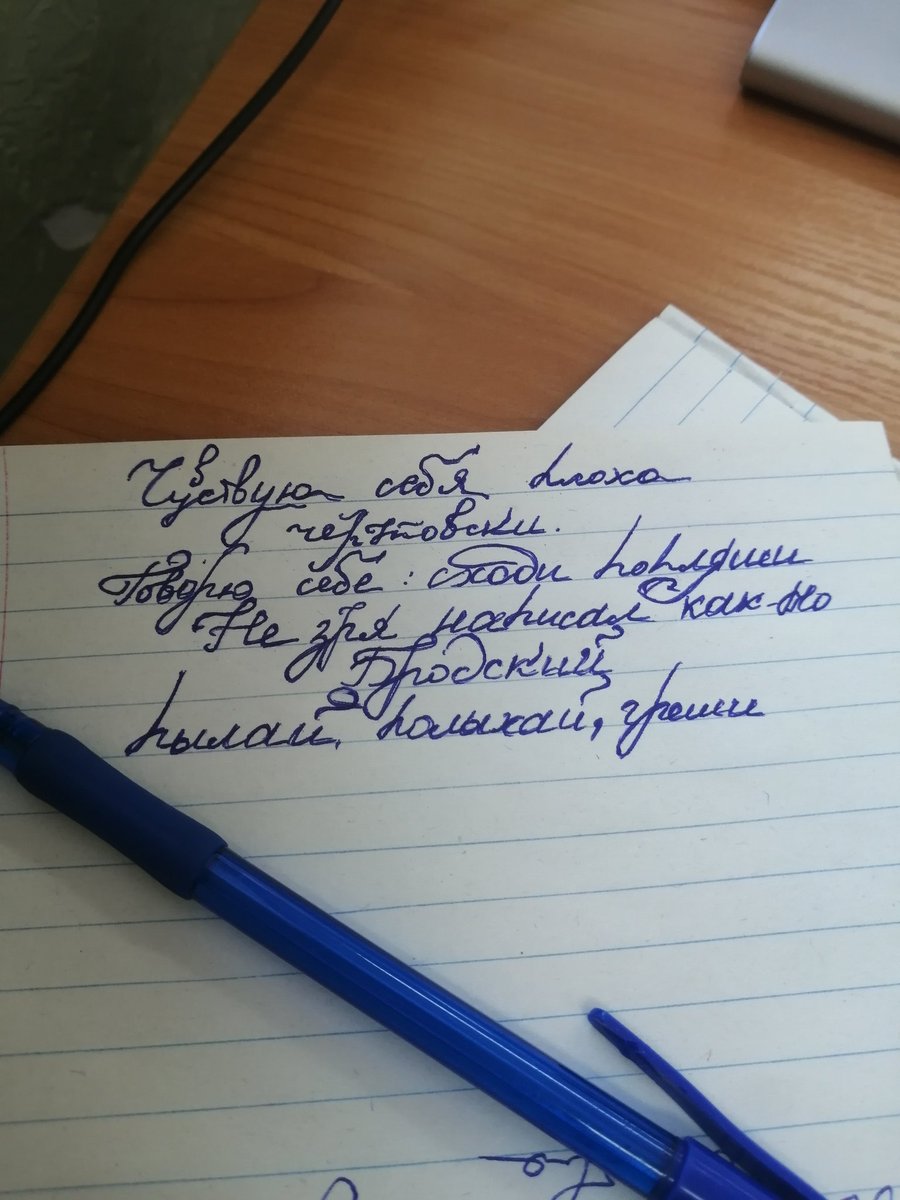 Чувствую себя плохо
чертовски.
Говорю себе: сходи попляши
Не зря написал как-то
Бродский
Пылай, полыхай, греши